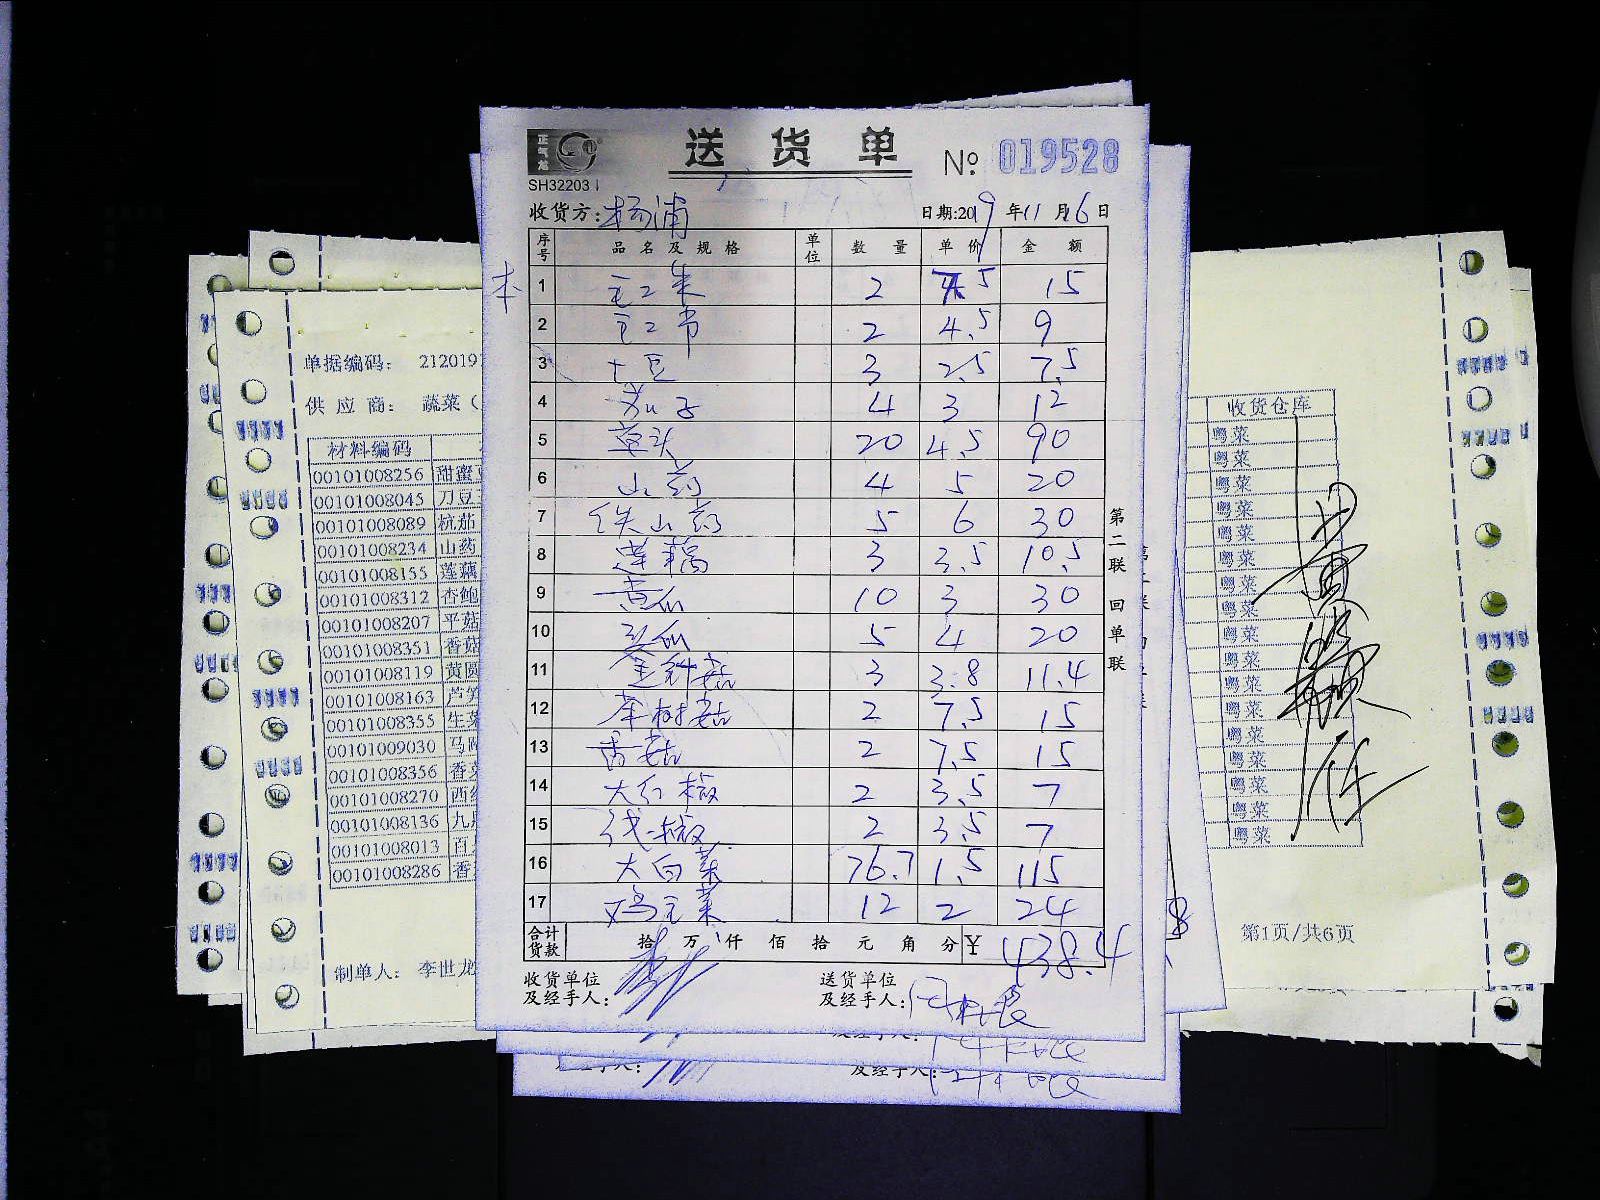 正气龙
送货单
№: 019528
SH32203
收货方: 杨浦
日期:2019年11月16日
序号 品名及规格 单位 数量 单价 金额
本
1 2 7.5 15
2 2 4.5 9
3 土豆 3 2.5 7.5
4 茄子 4 3 12
5 草头 20 4.5 90
6 山药 4 5 20
7 铁山药 5 6 30
8 莲藕 3 3.5 10.5
9 黄瓜 10 3 30
10 冬瓜 5 4 20
11 金针菇 3 3.8 11.4
12 茶树菇 2 7.5 15
13 香菇 2 7.5 15
14 大红椒 2 3.5 7
15 线椒 2 3.5 7
16 大白菜 76.7 1.5 115
17 鸡毛菜 12 2 24
合计货款 拾 万 仟 佰 拾 元 角 分 ¥ 438.4
收货单位及经手人:
送货单位及经手人:
第二联 回单联
单据编码: 2120191
供应商: 蔬菜(
材料编码
00101008256 甜蜜
00101008045 刀豆
00101008089 杭茄
00101008234 山药
00101008155 莲藕
00101008312 杏鲍
00101008207 平菇
00101008351 香菇
00101008119 黄圆
00101008163 芦笋
00101008355 生菜
00101009030 马
00101008356 香菜
00101008270 西
00101008136 九
00101008013 百
00101008286 香
制单人: 李世龙
收货仓库
粤菜
粤菜
粤菜
粤菜
粤菜
粤菜
粤菜
粤菜
粤菜
粤菜
粤菜
粤菜
粤菜
粤菜
粤菜
粤菜
粤菜
第1页/共6页
及经手人: